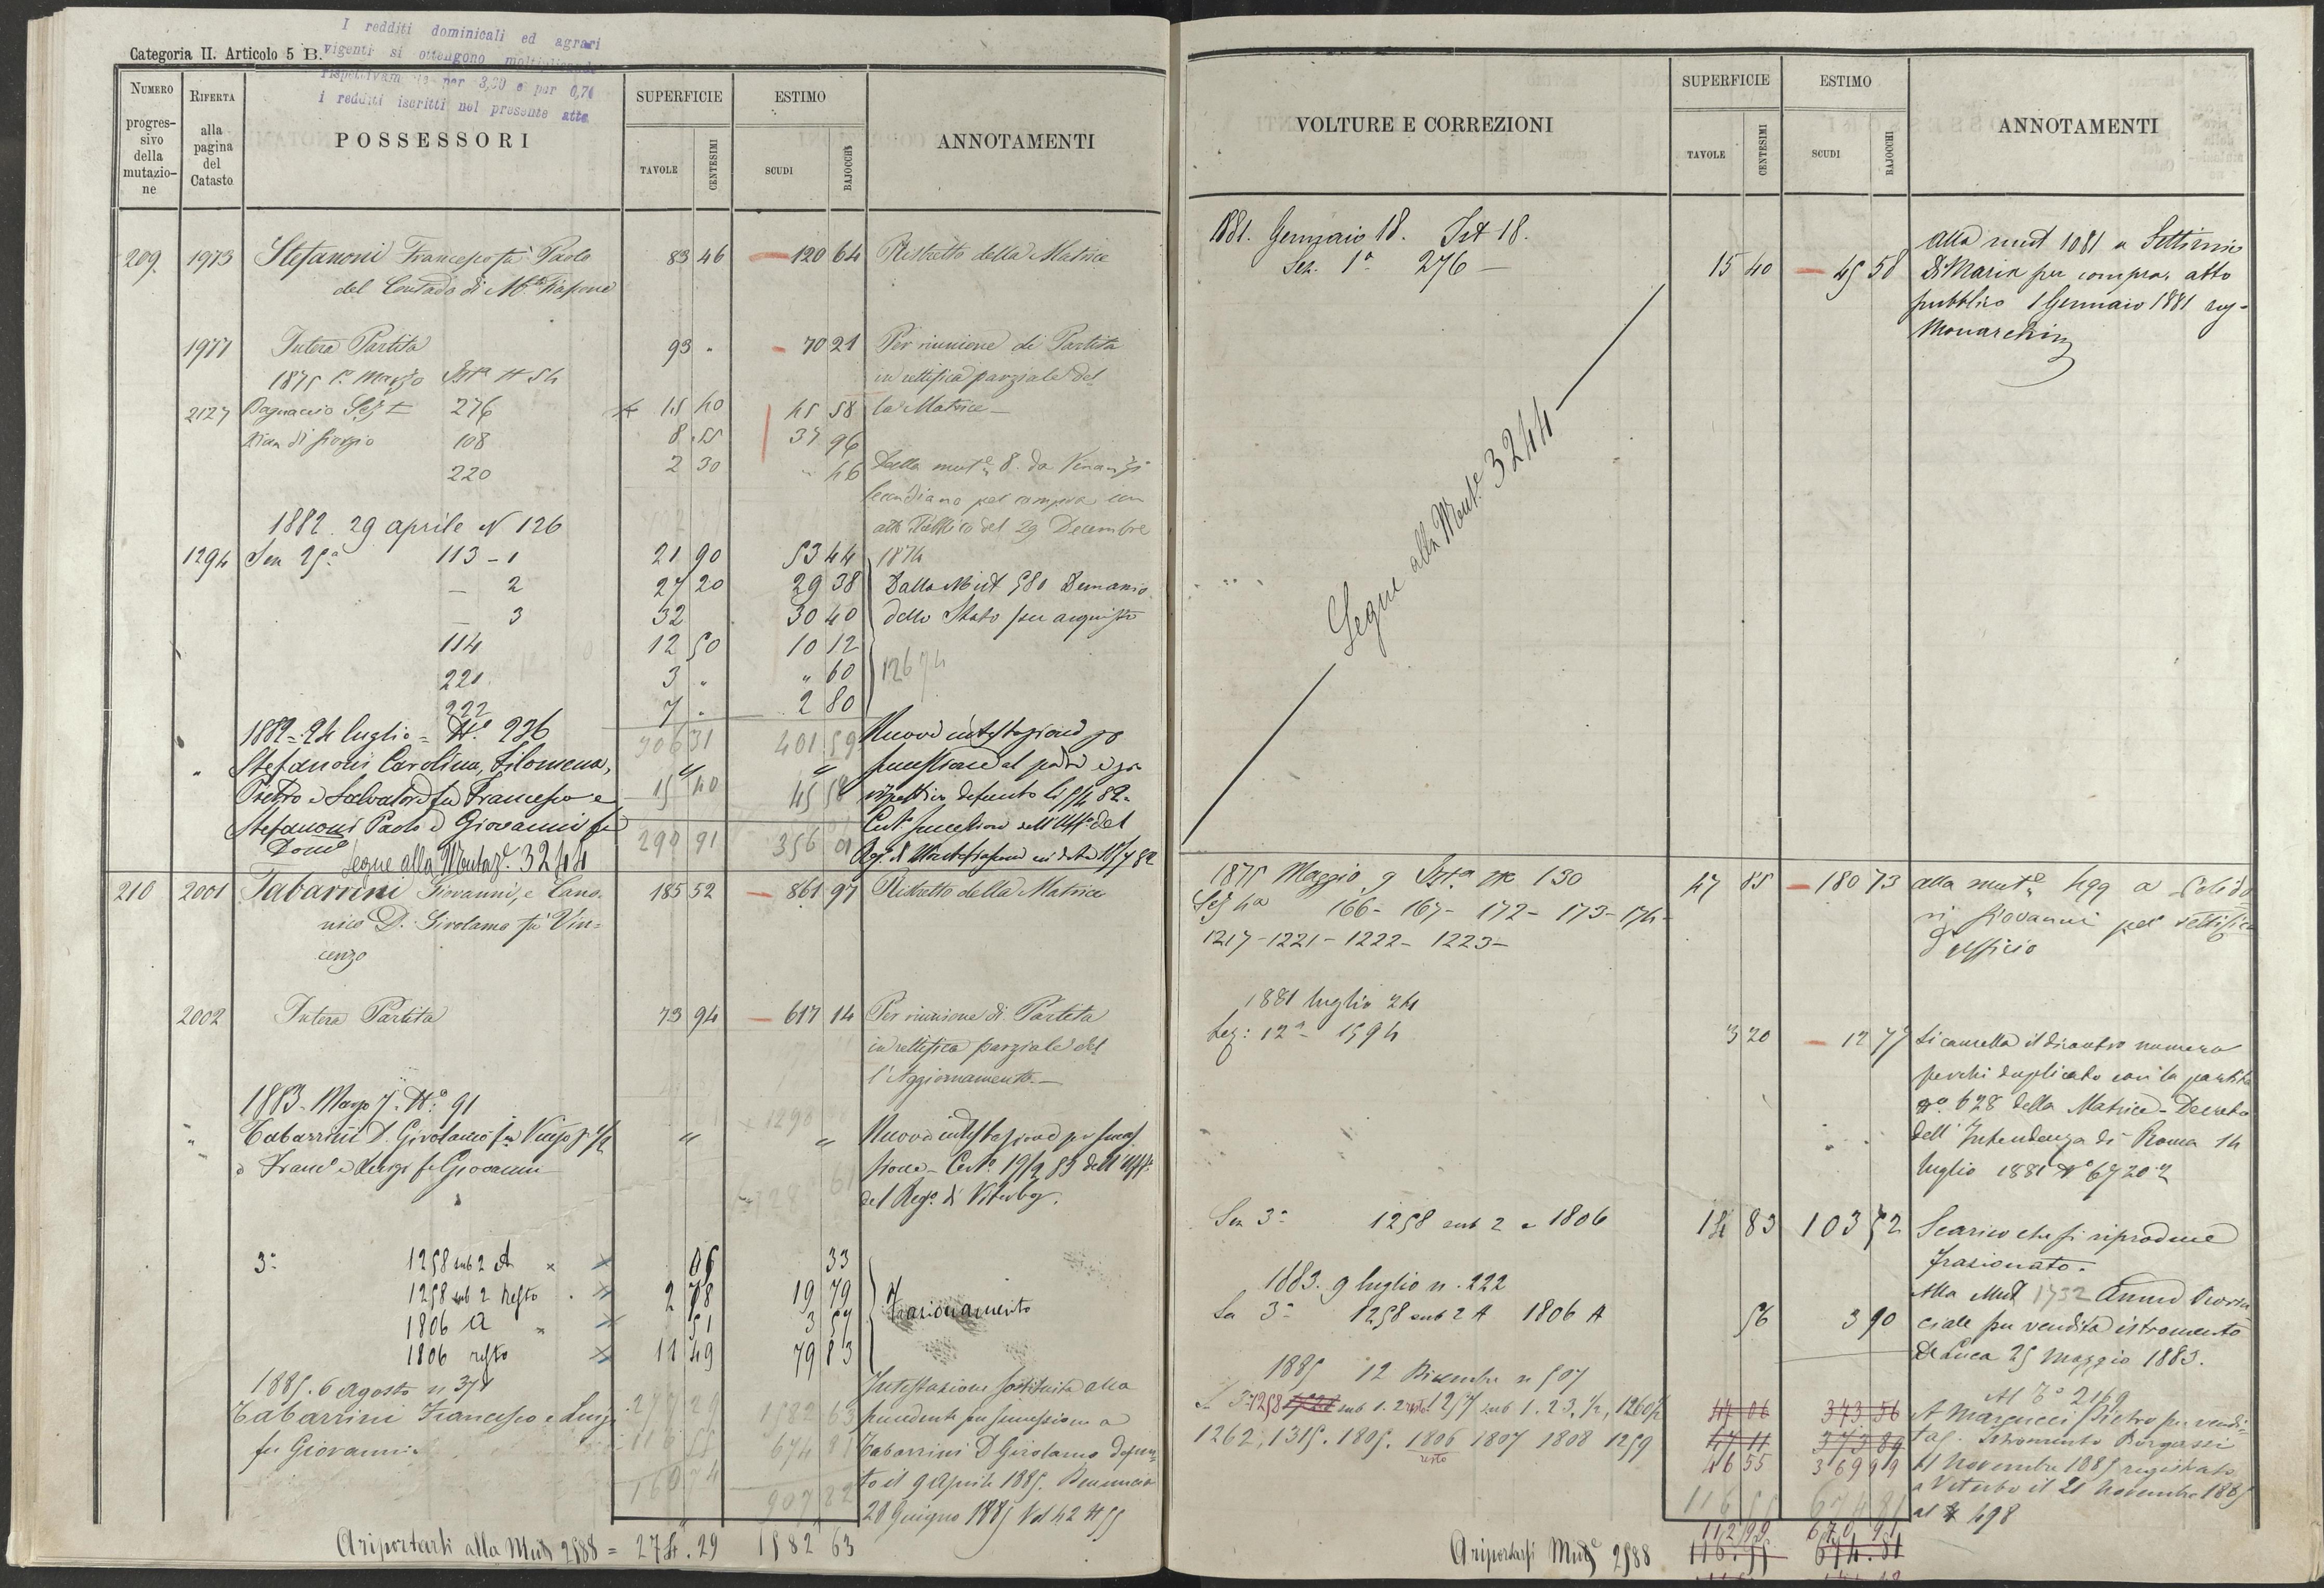 Categoria II. Articolo 5 B.
I redditi dominicali ed agrari
vigenti si ottengono moltiplicando
per 3,20 e per 0,70
i redditi iscritti nel presente atto
NUMERO progres-sivo della mutazio-ne
RIFERTA alla pagina del Catasto
POSSESSORI
SUPERFICIE
TAVOLE
CENTESIMI
ESTIMO
SCUDI
BAJOCCHI
ANNOTAMENTI
209. 1973 Stefanoni Francesco fu Paolo 83 46 120 64 Ristretto della Matrice
del Contado di M.te Fiascone
1977 Intera Partita 93 " 70 21 Per riunione di Partita
1875 1° Marzo Ist.a N 54 in rettifica parziale del
2127 Sez I 276 15 40 45 58 la Matrice
108 8 55 37 96
220 2 30 " 46 Dalla mut.e 8. da
per compra con
atto Pubblico del 29 Decembre
1882. 29 aprile N 126
1294 Sez 25.a 113 - 1 21 90 53 44 1874
— 2 27 20 29 38 Dalla Mut 580 Demanio
— 3 32 30 40 dello Stato per acquisto
114 12 50 10 12
221 3 " " 60 126 74
222 7 " 2 80
1882 = 24 luglio = N.° 236 306 31 401 59 Nuova intestazione per
" Stefanoni Carolina, Filomena, " " successione al padre e
Pietro e Salvatore fu Francesco e 15 40 45 58 rispettivo defunto li 5/4 82.
Stefanoni Paolo e Giovanni fu 290 91 356 01 Cert. successione dell'Uff° del
Dom.co Reg. di Montefiascone in data
Segue alla Mutaz.e 3244
210 2001 Tabarrini Giovanni, e Cano- 185 52 861 97 Ristretto della Matrice
nico D. Girolamo fu Vin=
cenzo
2002 Intera Partita 73 94 617 14 Per riunione di Partita
in rettifica parziale del
l'Aggiornamento.—
1883. Marzo 7. N.° 91
Tabarrini D. Girolamo fu " " Nuova intestazione per succes
e Franc.o e Luigi fu Giovanni sione - Cert.° 19/2 83 dell'Uff.°
del Reg.° di Viterbo.
3.a 1258 sub 2 A 06 33
1258 sub 2 resto 2 78 19 79 Frazionamento
1806 A 51 3 57
1806 resto 11 49 79 83
1885. 6 Agosto n 371 Intestazione sostituita alla
Tabarrini Francesco e Luigi 1582 63 precedente per successione a
fu Giovanni 116 55 674 81 Tabarrini D Girolamo defun
907 82 to il 9 Aprile 1885. Denuncia
28 Giugno 1885 Vol 42 N 55
A riportarsi alla Mut.e 2588 = 274.29 1582 63
VOLTURE E CORREZIONI
SUPERFICIE
TAVOLE
CENTESIMI
ESTIMO
SCUDI
BAJOCCHI
ANNOTAMENTI
1881. Gennaio 18. Ist 18.
Sez. 1.a 276 — 15 40 45 58
Alla mut 1081 a Settimio
Di Maria per compra, atto
pubblico 1 Gennaio 1881 rog.
Monarchini
Segue alla Mut.e 3244
1875 Maggio 9 Ist.a N 130 47 85 180 73 alla mut.e 499 a
Sez 4a 166 - 167 - 172 - 173 - 174 - Giovanni per rettifica
1217 - 1221 - 1222 - 1223 - d'Ufficio
1881 luglio 24
Sez: 12.a 1594 3 20 12 77 Si cancella il dicontro numero
perchè duplicato con la partita
N.° 628 della Matrice - Decreto
dell'Intendenza di Roma 14
luglio 1881 N.° 6720.2
Sez 3.a 1258 sub 2 e 1806 14 83 103 52 Scarico che si riproduce
frazionato.
1883. 9 luglio n. 222 Alla Mut 1732 Ammne Provin
Sez 3.a 1258 sub 2 A 1806 A 56 3 90 ciale per vendita istromento
De Luca 25 Maggio 1883.
1885 12 Dicembre n 507 Al N° 2169
1258 sub 1. 2 resto 1257 sub 1. 2 3. 1/2, 1260 1/2 47 06 373 56 A Marcucci Pietro per vendi-
1262, 1315. 1805. 1806 resto 1807 1808 1259 47 11 373 89 ta. Istromento Borgassi
46 55 369 99 11 Novembre 1885 registrato
116 55 674 81 a Viterbo il 21 Novembre 1885
al N 498
112 99 670 91
A riportarsi Mut.e 2588 116.55 674.81